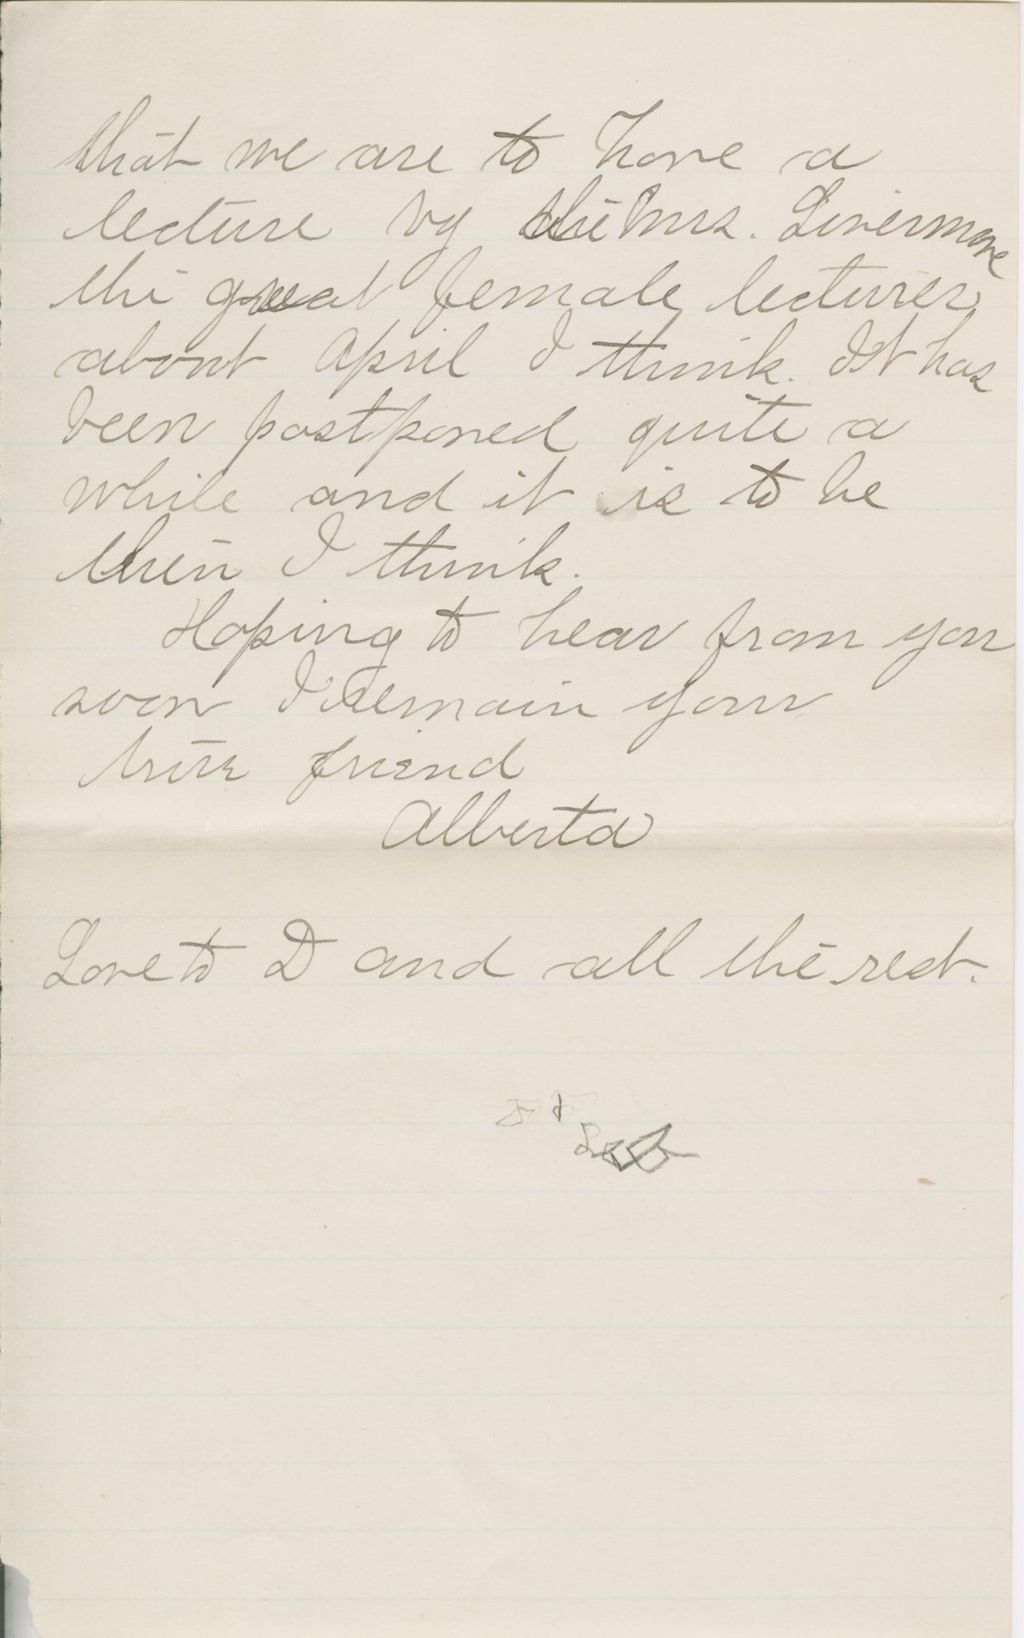 that we are to have a
lecture by Mrs. Livermore
the great female lecturer
about April I think. It has
been postponed quite a
while and it is to be
then I think.
Hoping to hear from you
soon I remain your
true friend
Alberta
Love to D and all the rest.